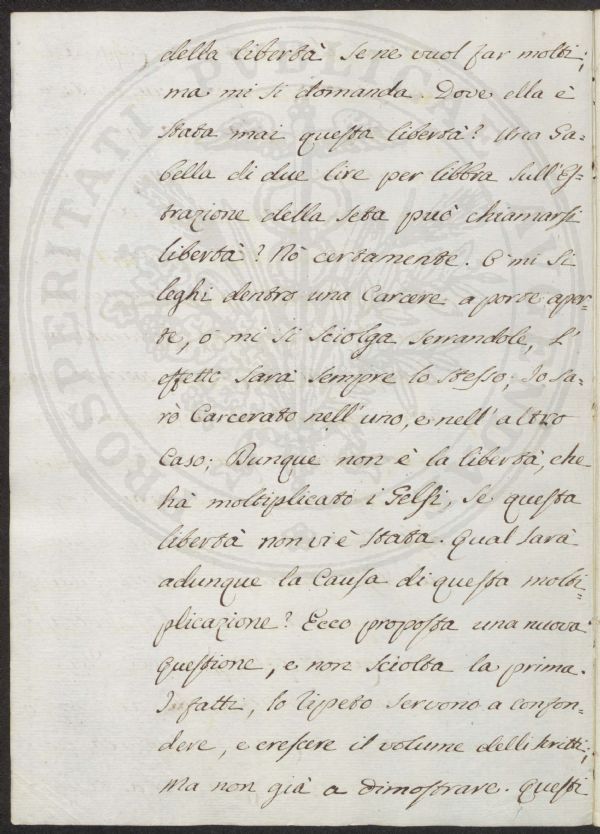 della libertà se ne vuol far molti;
ma mi si domanda. Dove ella è
stata mai questa libertà? Una Ga=
bella di due lire per libbra sull'Es=
trazione della seta può chiamarsi
libertà? Nò certamente. O mi si
leghi dentro una Carcere a porte aper=
te, o mi si sciolga serrandole, L'
effetto sarà sempre lo stesso; Io sa=
rò Carcerato nell'uno, e nell'altro
Caso; Dunque non è la libertà, che
hà moltiplicato i Gelsi, se questa
libertà non vi è stata. Qual sarà
adunque la Causa di questa molti=
plicazione? Ecco proposta una nuova
questione, e non sciolta la prima.
I fatti, lo ripeto servono a confon=
dere, e crescere il volume delli scritti;
Ma non già a dimostrare. Questi
PROSPERITATI PUBLICAE AUGENDAE